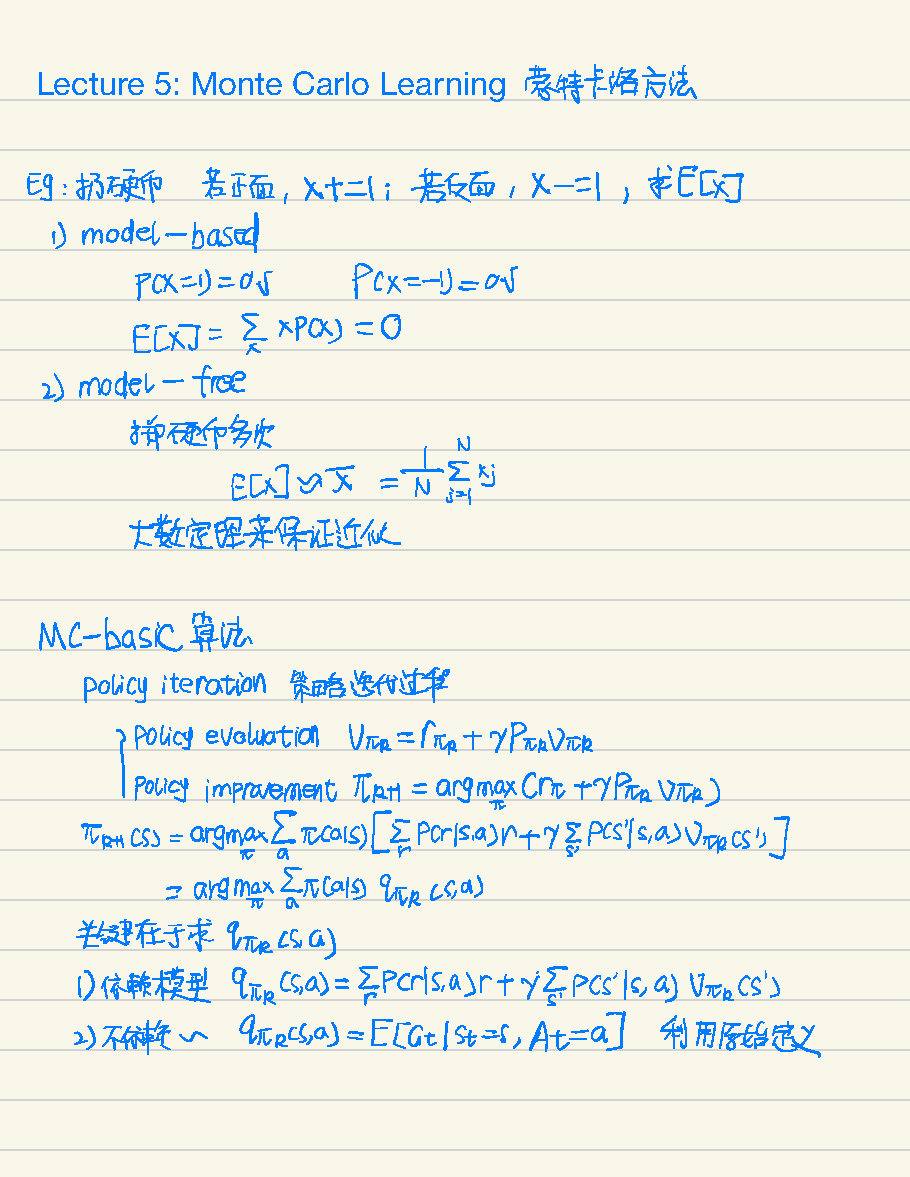 Lecture 5: Monte Carlo Learning 蒙特卡洛方法
Eg: 扔硬币 若正面, X+=1; 若反面, X-=1, 求E[X]
1) model-based
P(X=1)=0.5 P(X=-1)=0.5
E[X] = Σ_x xP(x) = 0
2) model-free
抛硬币多次
E[X] ≈ x̄ = 1/N Σ_{j=1}^N x_j
大数定理来保证近似
MC-basic 算法
policy iteration 策略迭代过程
policy evaluation V_πk = r_πk + γP_πk V_πk
policy improvement π_k+1 = argmax_π (r_π + γP_πk V_πk)
π_k+1(s) = argmax_π Σ_a π(a|s) [Σ_r P(r|s,a)r + γ Σ_s' P(s'|s,a) V_πk(s')]
= argmax_π Σ_a π(a|s) q_πk(s,a)
关键在于求 q_πk(s,a)
1) 依赖模型 q_πk(s,a) = Σ_r P(r|s,a)r + γ Σ_s' P(s'|s,a) V_πk(s')
2) 不依赖 ~ q_πk(s,a) = E[G_t | S_t=s, A_t=a] 利用原始定义